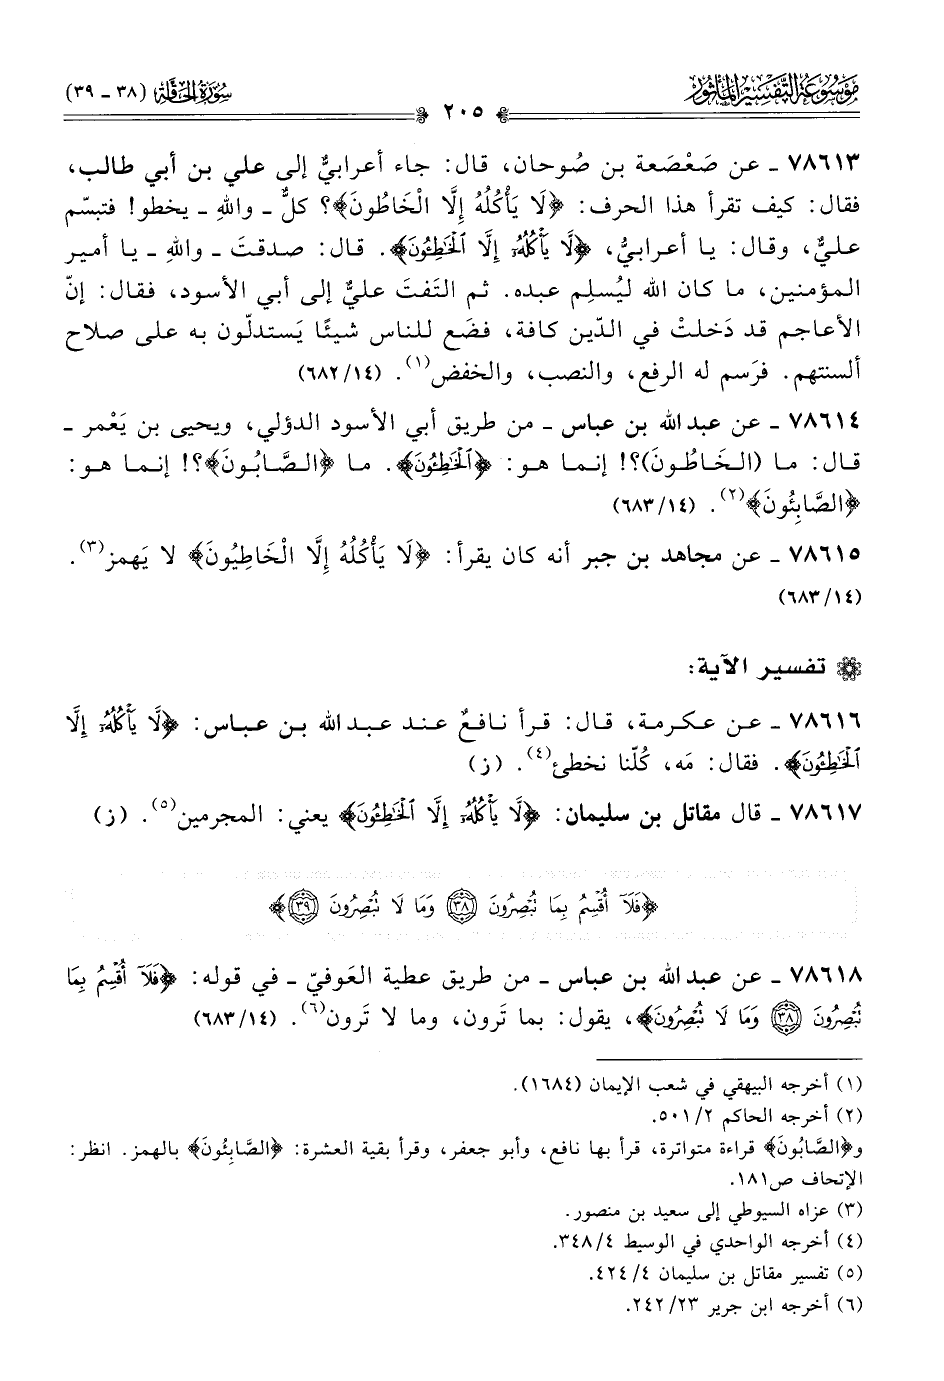 موسوعة التفسير المأثور
سورة الحاقة (٣٨ - ٣٩)
٢٠٥
٧٨٦١٣ - عن صَعْصَعة بن صُوحان، قال: جاء أعرابيٌّ إلى علي بن أبي طالب،
فقال: كيف تقرأ هذا الحرف: ﴿لَا يَأْكُلُهُ إِلَّا الْخَاطُونَ﴾؟ كلٌّ - واللهِ - يخطو! فتبسّم
عليٌّ، وقال: يا أعرابيُّ، ﴿لَّا يَأْكُلُهُۥٓ إِلَّا ٱلْخَٰطِـُٔونَ﴾. قال: صدقتَ - واللهِ - يا أمير
المؤمنين، ما كان الله ليُسلِم عبده. ثم التَفتَ عليٌّ إلى أبي الأسود، فقال: إنّ
الأعاجم قد دَخلتْ في الدّين كافة، فضَع للناس شيئًا يَستدلّون به على صلاح
ألسنتهم. فرَسم له الرفع، والنصب، والخفض(١). (٦٨٢/١٤)
٧٨٦١٤ - عن عبد الله بن عباس - من طريق أبي الأسود الدؤلي، ويحيى بن يَعْمر -
قال: ما (الخَاطُونَ)؟! إنما هو: ﴿ٱلْخَٰطِـُٔونَ﴾. ما ﴿الصَّابُونَ﴾؟! إنما هو:
﴿الصَّابِئُونَ﴾(٢). (٦٨٣/١٤)
٧٨٦١٥ - عن مجاهد بن جبر أنه كان يقرأ: ﴿لَا يَأْكُلُهُ إِلَّا الْخَاطِيُونَ﴾ لا يَهمز(٣).
(٦٨٣/١٤)
تفسير الآية:
٧٨٦١٦ - عن عكرمة، قال: قرأ نافعٌ عند عبد الله بن عباس: ﴿لَّا يَأْكُلُهُۥٓ إِلَّا
ٱلْخَٰطِـُٔونَ﴾. فقال: مَه، كُلّنا نخطئ(٤). (ز)
٧٨٦١٧ - قال مقاتل بن سليمان: ﴿لَّا يَأْكُلُهُۥٓ إِلَّا ٱلْخَٰطِـُٔونَ﴾ يعني: المجرمين(٥). (ز)
﴿فَلَآ أُقْسِمُ بِمَا تُبْصِرُونَ ٣٨ وَمَا لَا تُبْصِرُونَ ٣٩﴾
٧٨٦١٨ - عن عبد الله بن عباس - من طريق عطية العَوفيّ - في قوله: ﴿فَلَآ أُقْسِمُ بِمَا
تُبْصِرُونَ ٣٨ وَمَا لَا تُبْصِرُونَ﴾، يقول: بما تَرون، وما لا تَرون(٦). (٦٨٣/١٤)
(١) أخرجه البيهقي في شعب الإيمان (١٦٨٤).
(٢) أخرجه الحاكم ٥٠١/٢.
و﴿الصَّابُونَ﴾ قراءة متواترة، قرأ بها نافع، وأبو جعفر، وقرأ بقية العشرة: ﴿الصَّابِئُونَ﴾ بالهمز. انظر:
الإتحاف ص١٨١.
(٣) عزاه السيوطي إلى سعيد بن منصور.
(٤) أخرجه الواحدي في الوسيط ٣٤٨/٤.
(٥) تفسير مقاتل بن سليمان ٤٢٤/٤.
(٦) أخرجه ابن جرير ٢٤٢/٢٣.